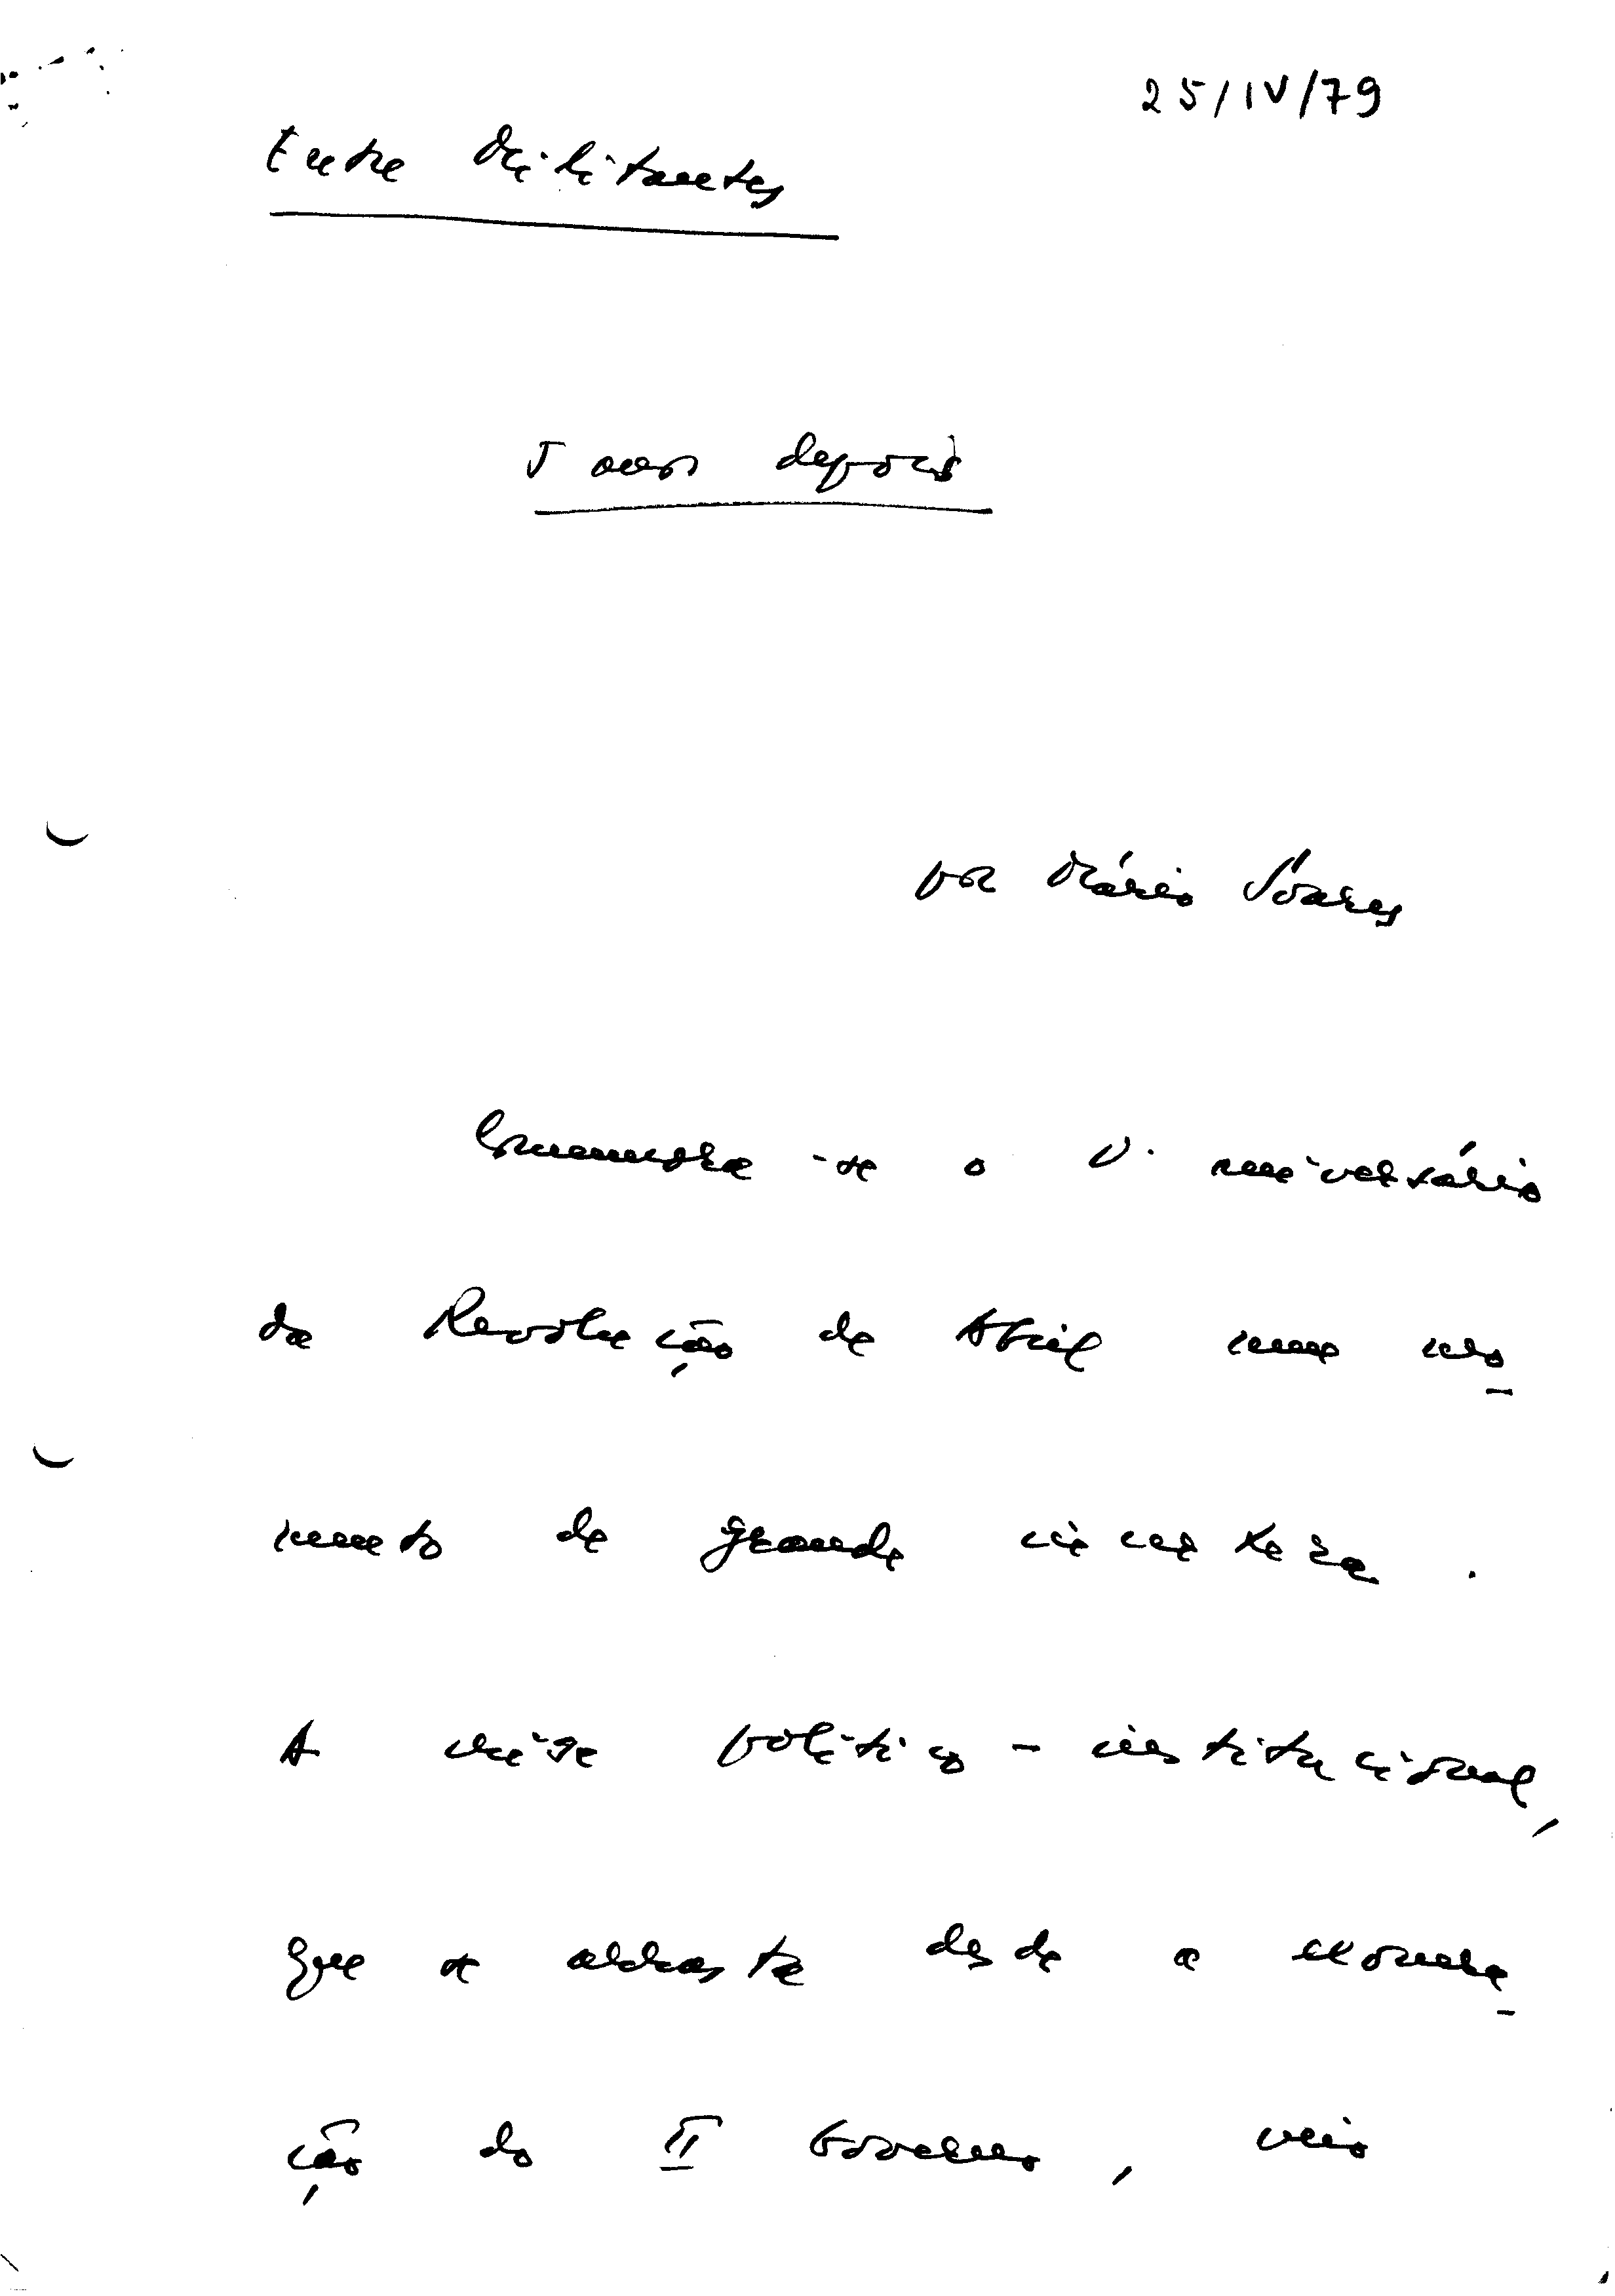 25/IV/79
Entre Militantes
5 anos depois
por Mário Soares
Comemora-se o V. aniversário
da Revolução de Abril num mo-
mento de grande incerteza.
A crise político-institucional,
que se arrasta desde a exonera-
ção do II Governo, veio